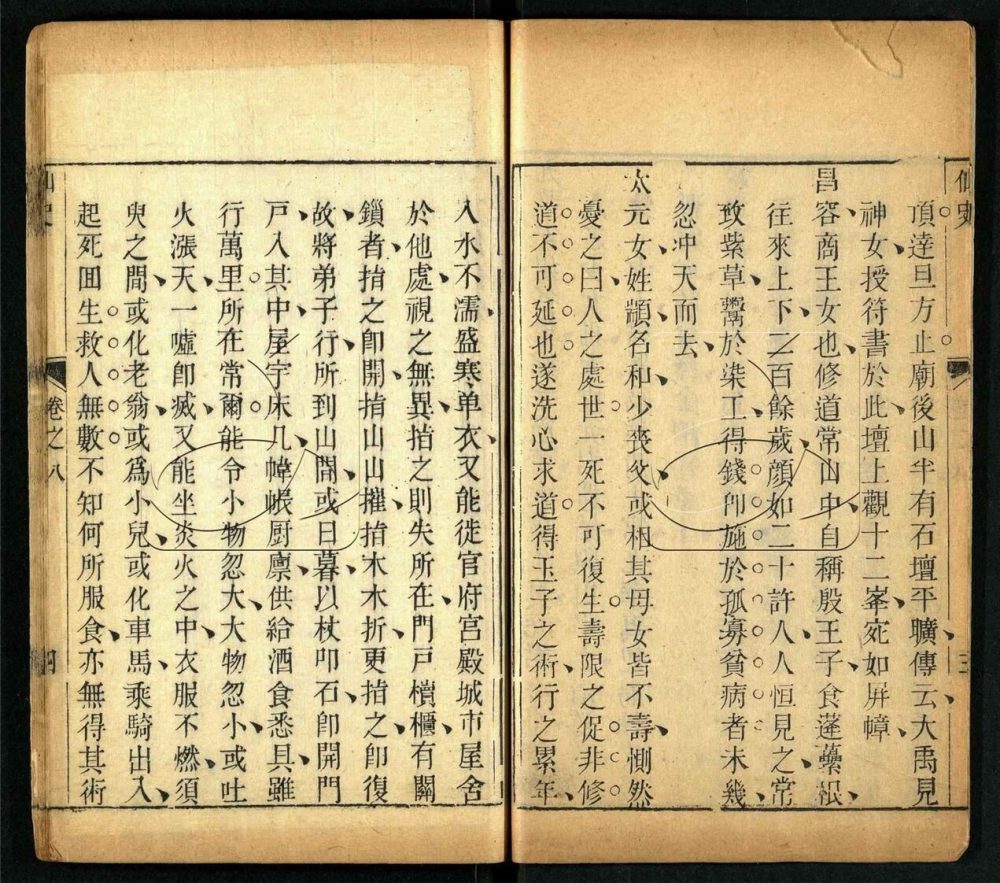 仙史
頂達旦方止廟後山半有石壇平曠傳云大禹見
神女授符書於此壇上觀十二峯宛如屏幛
昌容商王女也修道常山中自稱殷王子食蓬虆根
往來上下二百餘歲顏如二十許人人恒見之常
致紫草鬻於染工得錢卽施於孤寡貧病者未幾
忽冲天而去
太元女姓顓名和少喪父或相其母女皆不壽惻然
憂之曰人之處世一死不可復生壽限之促非修
道不可延也遂洗心求道得玉子之術行之累年
三
入水不濡盛寒单衣又能徙官府宮殿城市屋舍
於他處視之無異指之則失所在門戸櫝櫃有關
鎖者指之卽開指山山摧指木木折更指之卽復
故將弟子行所到山間或日暮以杖叩石卽開門
戸入其中屋宇床几幃帳厨廪供給酒食悉具雖
行萬里所在常爾能令小物忽大大物忽小或吐
火漲天一噓卽滅又能坐炎火之中衣服不燃須
臾之間或化老翁或爲小兒或化車馬乘騎出入
起死囬生救人無數不知何所服食亦無得其術
仙史
卷之八
四